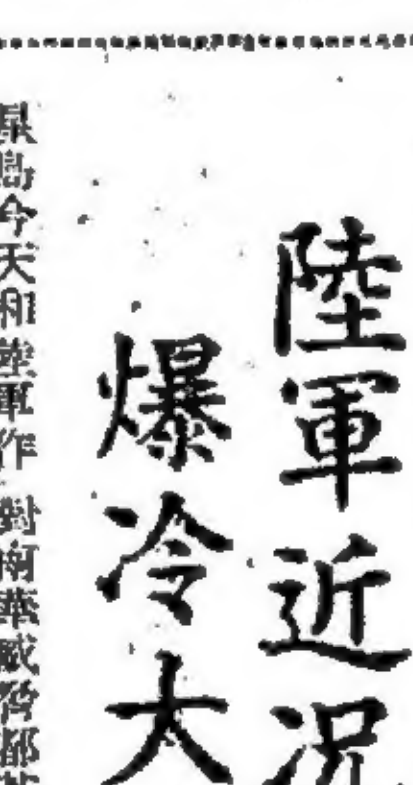 陸軍近況
爆冷大
島今天和陸軍作對南華威脅都